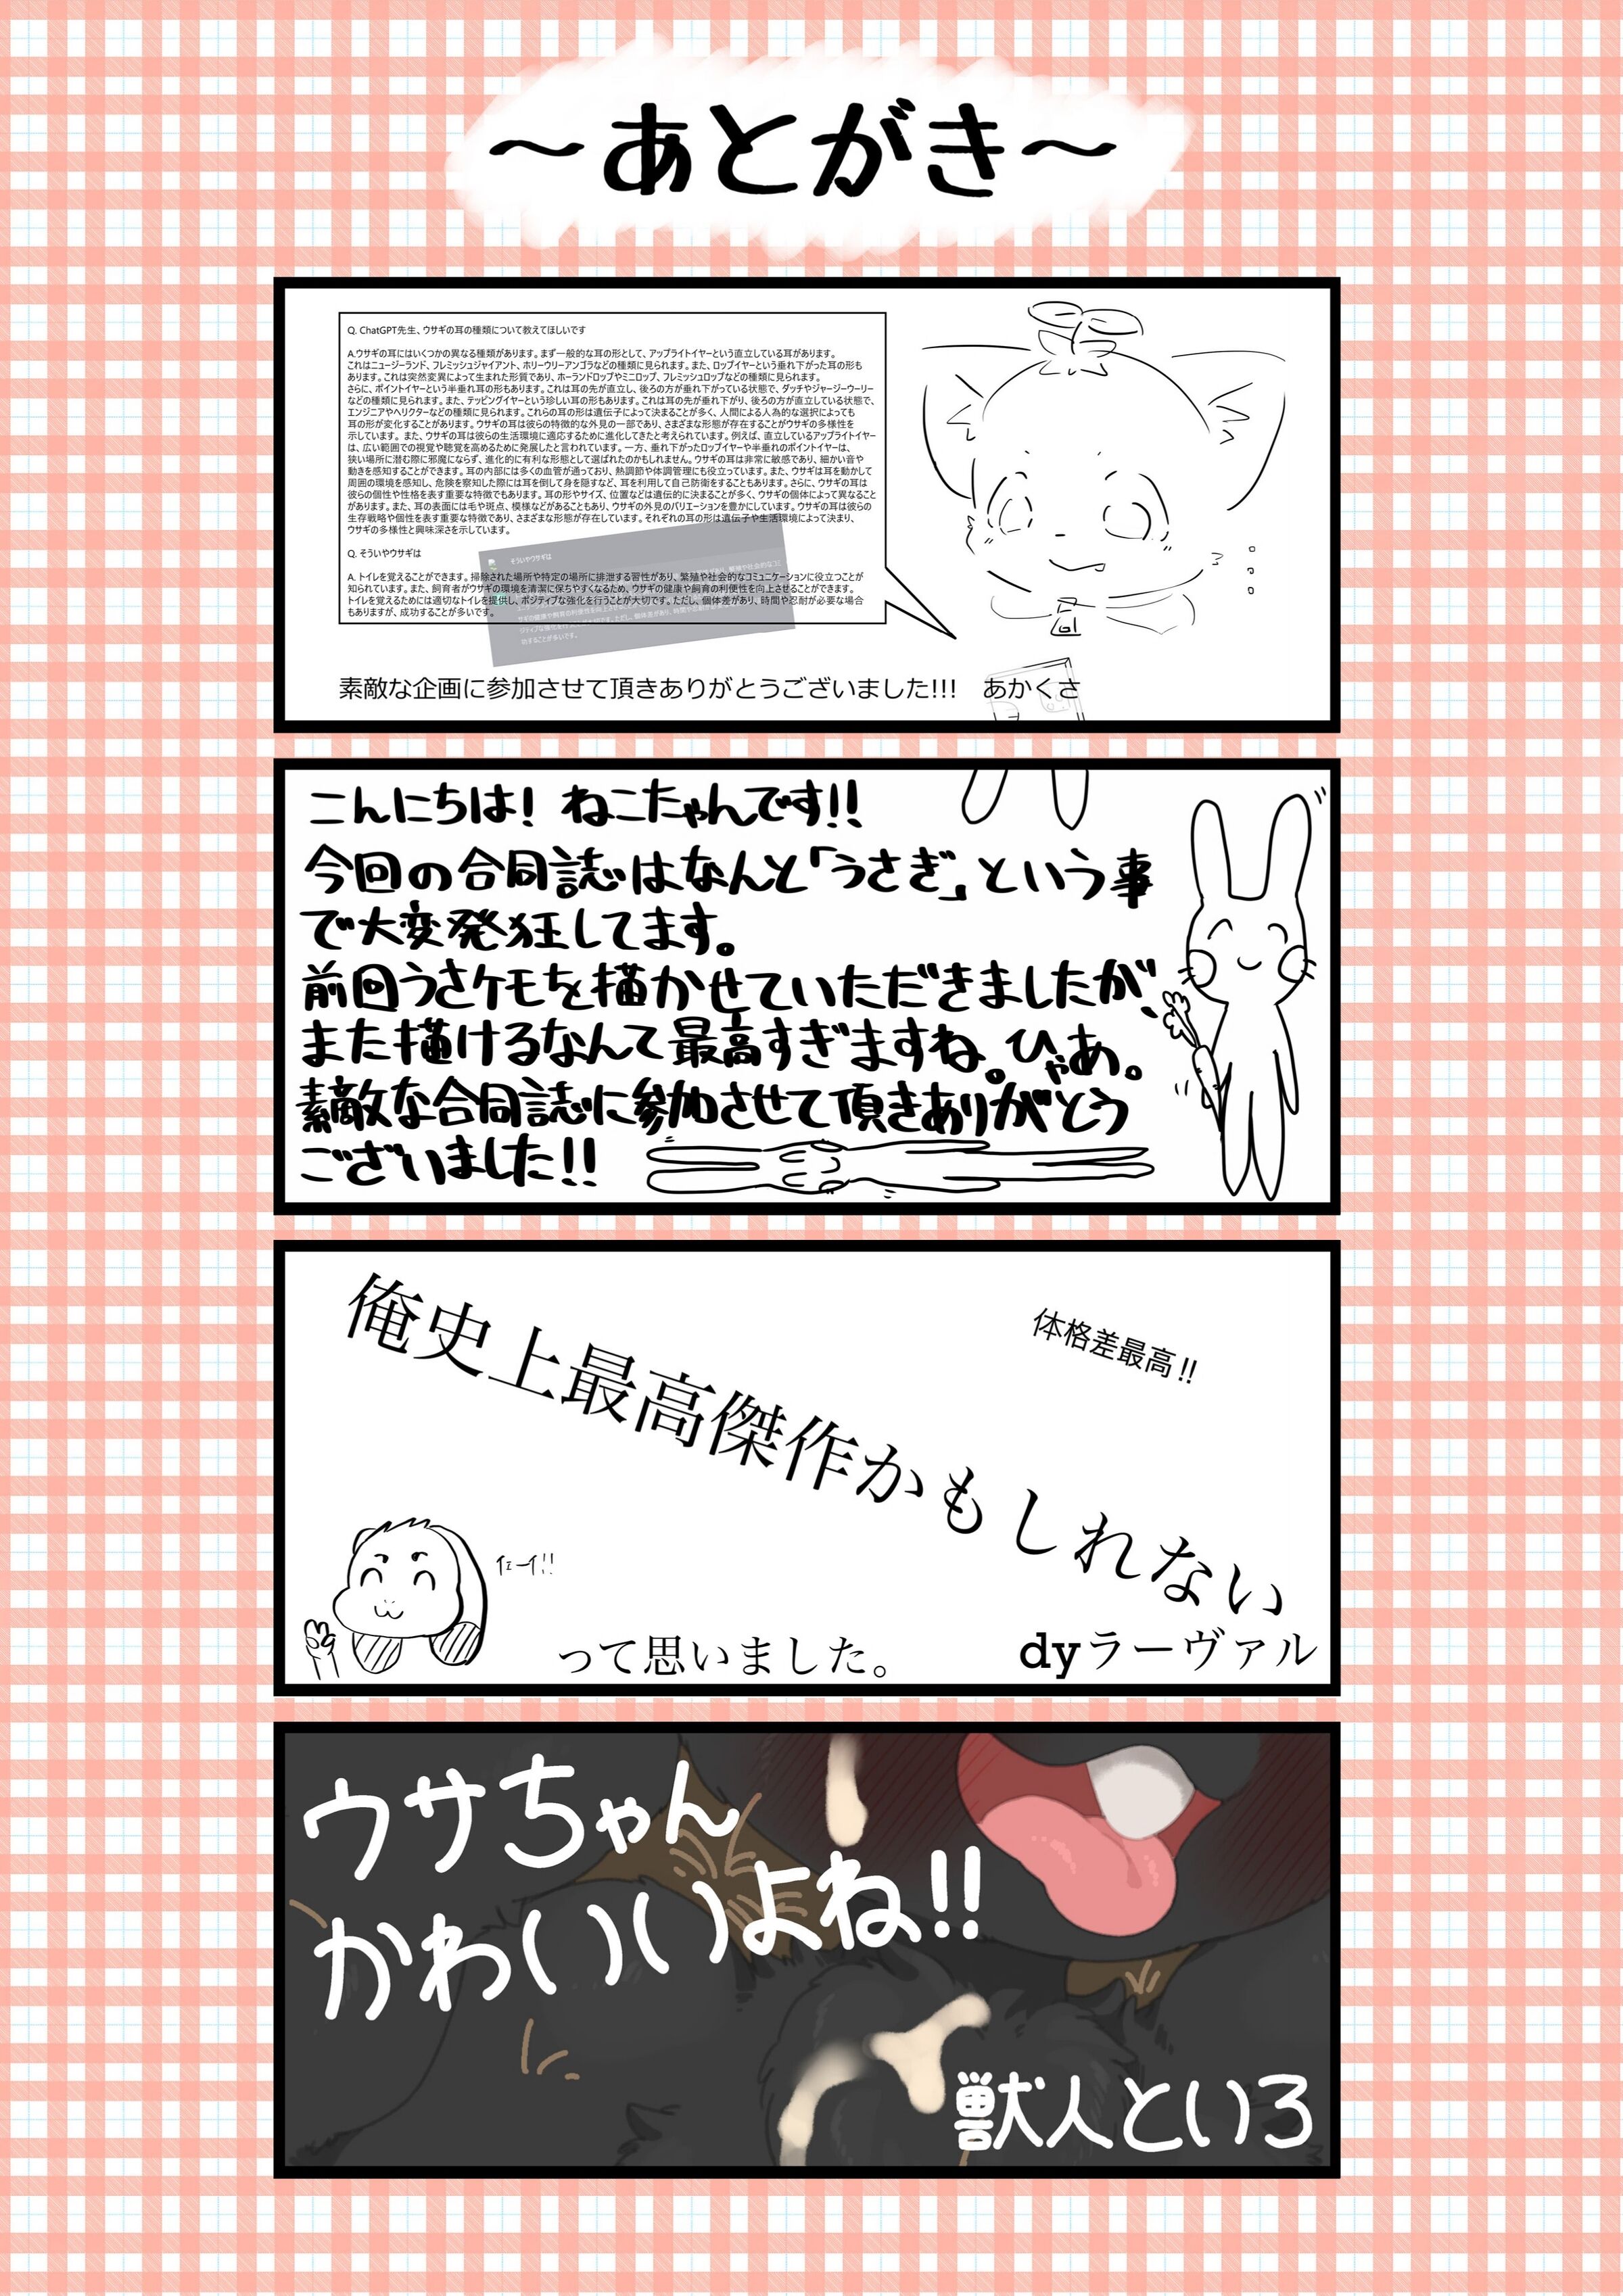 ～あとがき～
Q. ChatGPT先生、ウサギの耳の種類について教えてほしいです
A.ウサギの耳にはいくつかの異なる種類があります。まず一般的な耳の形として、アップライトイヤーという直立している耳があります。
これはニュージーランド、フレミッシュジャイアント、ホリーウリーアンゴラなどの種類に見られます。また、ロップイヤーという垂れ下がった耳の形も
あります。これは突然変異によって生まれた形質であり、ホーランドロップやミニロップ、フレミッシュロップなどの種類に見られます。
さらに、ポイントイヤーという半垂れ耳の形もあります。これは耳の先が直立し、後ろの方が垂れ下がっている状態で、ダッチやジャージーウーリー
などの種類に見られます。また、テッピングイヤーという珍しい耳の形もあります。これは耳の先が垂れ下がり、後ろの方が直立している状態で、
エンジニアやヘリクターなどの種類に見られます。これらの耳の形は遺伝子によって決まることが多く、人間による人為的な選択によっても
耳の形が変化することがあります。ウサギの耳は彼らの特徴的な外見の一部であり、さまざまな形態が存在することがウサギの多様性を
示しています。また、ウサギの耳は彼らの生活環境に適応するために進化してきたと考えられています。例えば、直立しているアップライトイヤー
は、広い範囲での視覚や聴覚を高めるために発展したと言われています。一方、垂れ下がったロップイヤーや半垂れのポイントイヤーは、
狭い場所に潜む際に邪魔にならず、進化的に有利な形態として選ばれたのかもしれません。ウサギの耳は非常に敏感であり、細かい音や
動きを感知することができます。耳の内部には多くの血管が通っており、熱調節や体調管理にも役立っています。また、ウサギは耳を動かして
周囲の環境を感知し、危険を察知した際には耳を倒して身を隠すなど、耳を利用して自己防衛をすることもあります。さらに、ウサギの耳は
彼らの個性や性格を表す重要な特徴でもあります。耳の形やサイズ、位置などは遺伝的に決まることが多く、ウサギの個体によって異なること
があります。また、耳の表面には毛や斑点、模様などがあることもあり、ウサギの外見のバリエーションを豊かにしています。ウサギの耳は彼らの
生存戦略や個性を表す重要な特徴であり、さまざまな形態が存在しています。それぞれの耳の形は遺伝子や生活環境によって決まり、
ウサギの多様性と興味深さを示しています。
Q. そういやウサギは
A. トイレを覚えることができます。掃除された場所や特定の場所に排泄する習性があり、繁殖や社会的なコミュニケーションに役立つことが
知られています。また、飼育者がウサギの環境を清潔に保ちやすくなるため、ウサギの健康や飼育の利便性を向上させることができます。
トイレを覚えるためには適切なトイレを提供し、ポジティブな強化を行うことが大切です。ただし、個体差があり、時間や忍耐が必要な場合
もありますが、成功することが多いです。
そういやウサギは
素敵な企画に参加させて頂きありがとうございました!!! あかくさ
こんにちは! ねこたゃんです!!
今回の合同誌はなんと「うさぎ」という事
で大変発狂してます。
前回うさケモを描かせていただきましたが、
また描けるなんて最高すぎますね。ひゃあ。
素敵な合同誌に参加させて頂きありがとう
ございました!!
体格差最高!!
俺史上最高傑作かもしれない
って思いました。
dyラーヴァル
ウサちゃん
かわいいよね!!
獣人といろ